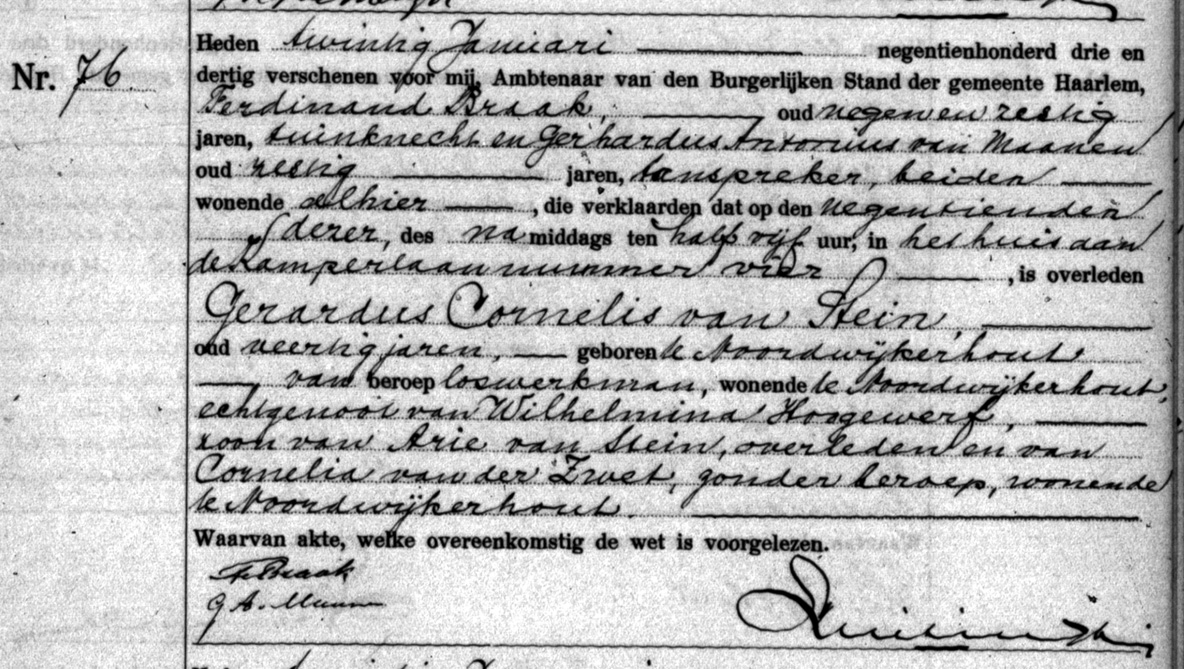 Heden twintig Januari negentienhonderd drie en
Nr. 76
dertig verschenen voor mij, Ambtenaar van den Burgerlijken Stand der gemeente Haarlem,
Ferdinand Braak, oud negen en zestig
jaren, tuinknecht en Gerhardus Antonius van Maanen
oud zestig jaren, aanspreker, beiden
wonende alhier, die verklaarden dat op den negentienden
dezer, des namiddags ten half vijf uur, in het huis aan
de Kamperlaan nummer vier, is overleden
Gerardus Cornelis van Stein,
oud veertig jaren, geboren te Noordwijkerhout
, van beroep loswerkman, wonende te Noordwijkerhout,
echtgenoot van Wilhelmina Hoogewerf,
zoon van Arie van Stein, overleden en van
Cornelia van der Zwet, zonder beroep, wonende
te Noordwijkerhout.
Waarvan akte, welke overeenkomstig de wet is voorgelezen.
F. Braak